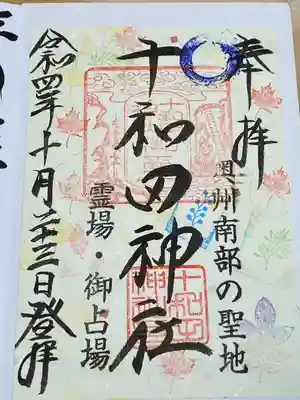 奉拝
奥州南部の聖地
十和田神社
霊場・御占場
令和四年十月二十三日登拝